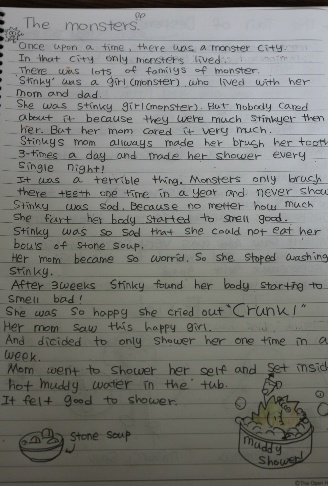 The monsters.
Once upon a time, there was a monster city.
In that city only monsters lived.
There was lots of familys of monster.
Stinky was a girl (monster) who lived with her
mom and dad.
She was stinky girl (monster). But nobody cared
about it because they were much stinkyer then
her. But her mom cared it very much.
Stinkys mom allways made her brush her teeth
3-times a day and made her shower every
single night!
It was a terrible thing. Monsters only brush
there teeth one time in a year and never show
Stinky was sad. Because no metter how much
she furt her body started to smell good.
Stinky was so sad that she could not eat her
bouls of stone soup.
Her mom became so worrid. So she stoped washing
Stinky.
After 3weeks Stinky found her body starting to
smell bad!
She was so happy she cried out "Crunk!"
Her mom saw this happy girl.
And dicided to only shower her one time in a
week.
Mom went to shower her self and set insid
hot muddy water in the tub.
It felt good to shower.
stone soup
muddy
shower!